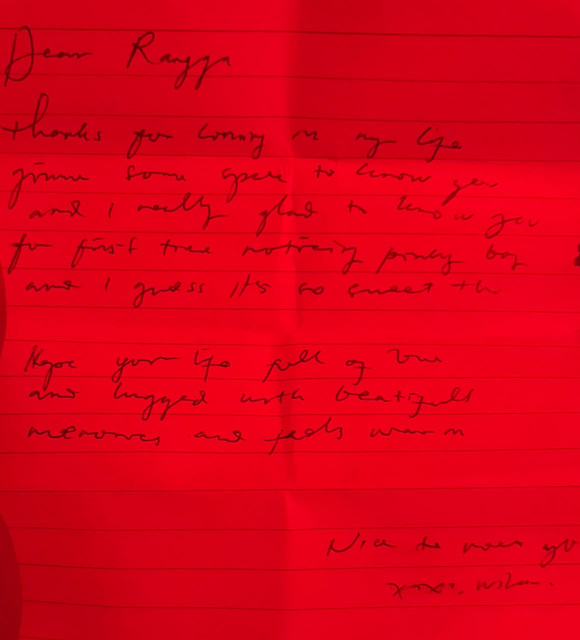 Dear Rangga
Thanks for coming in my life
gimme some space to know you
and I really glad to know you
for first time noticing boy
and I guess it's so sweet
Hope your life full of love
and hugged with beatifull
memories and feels warm
Nice to know
xoxo,